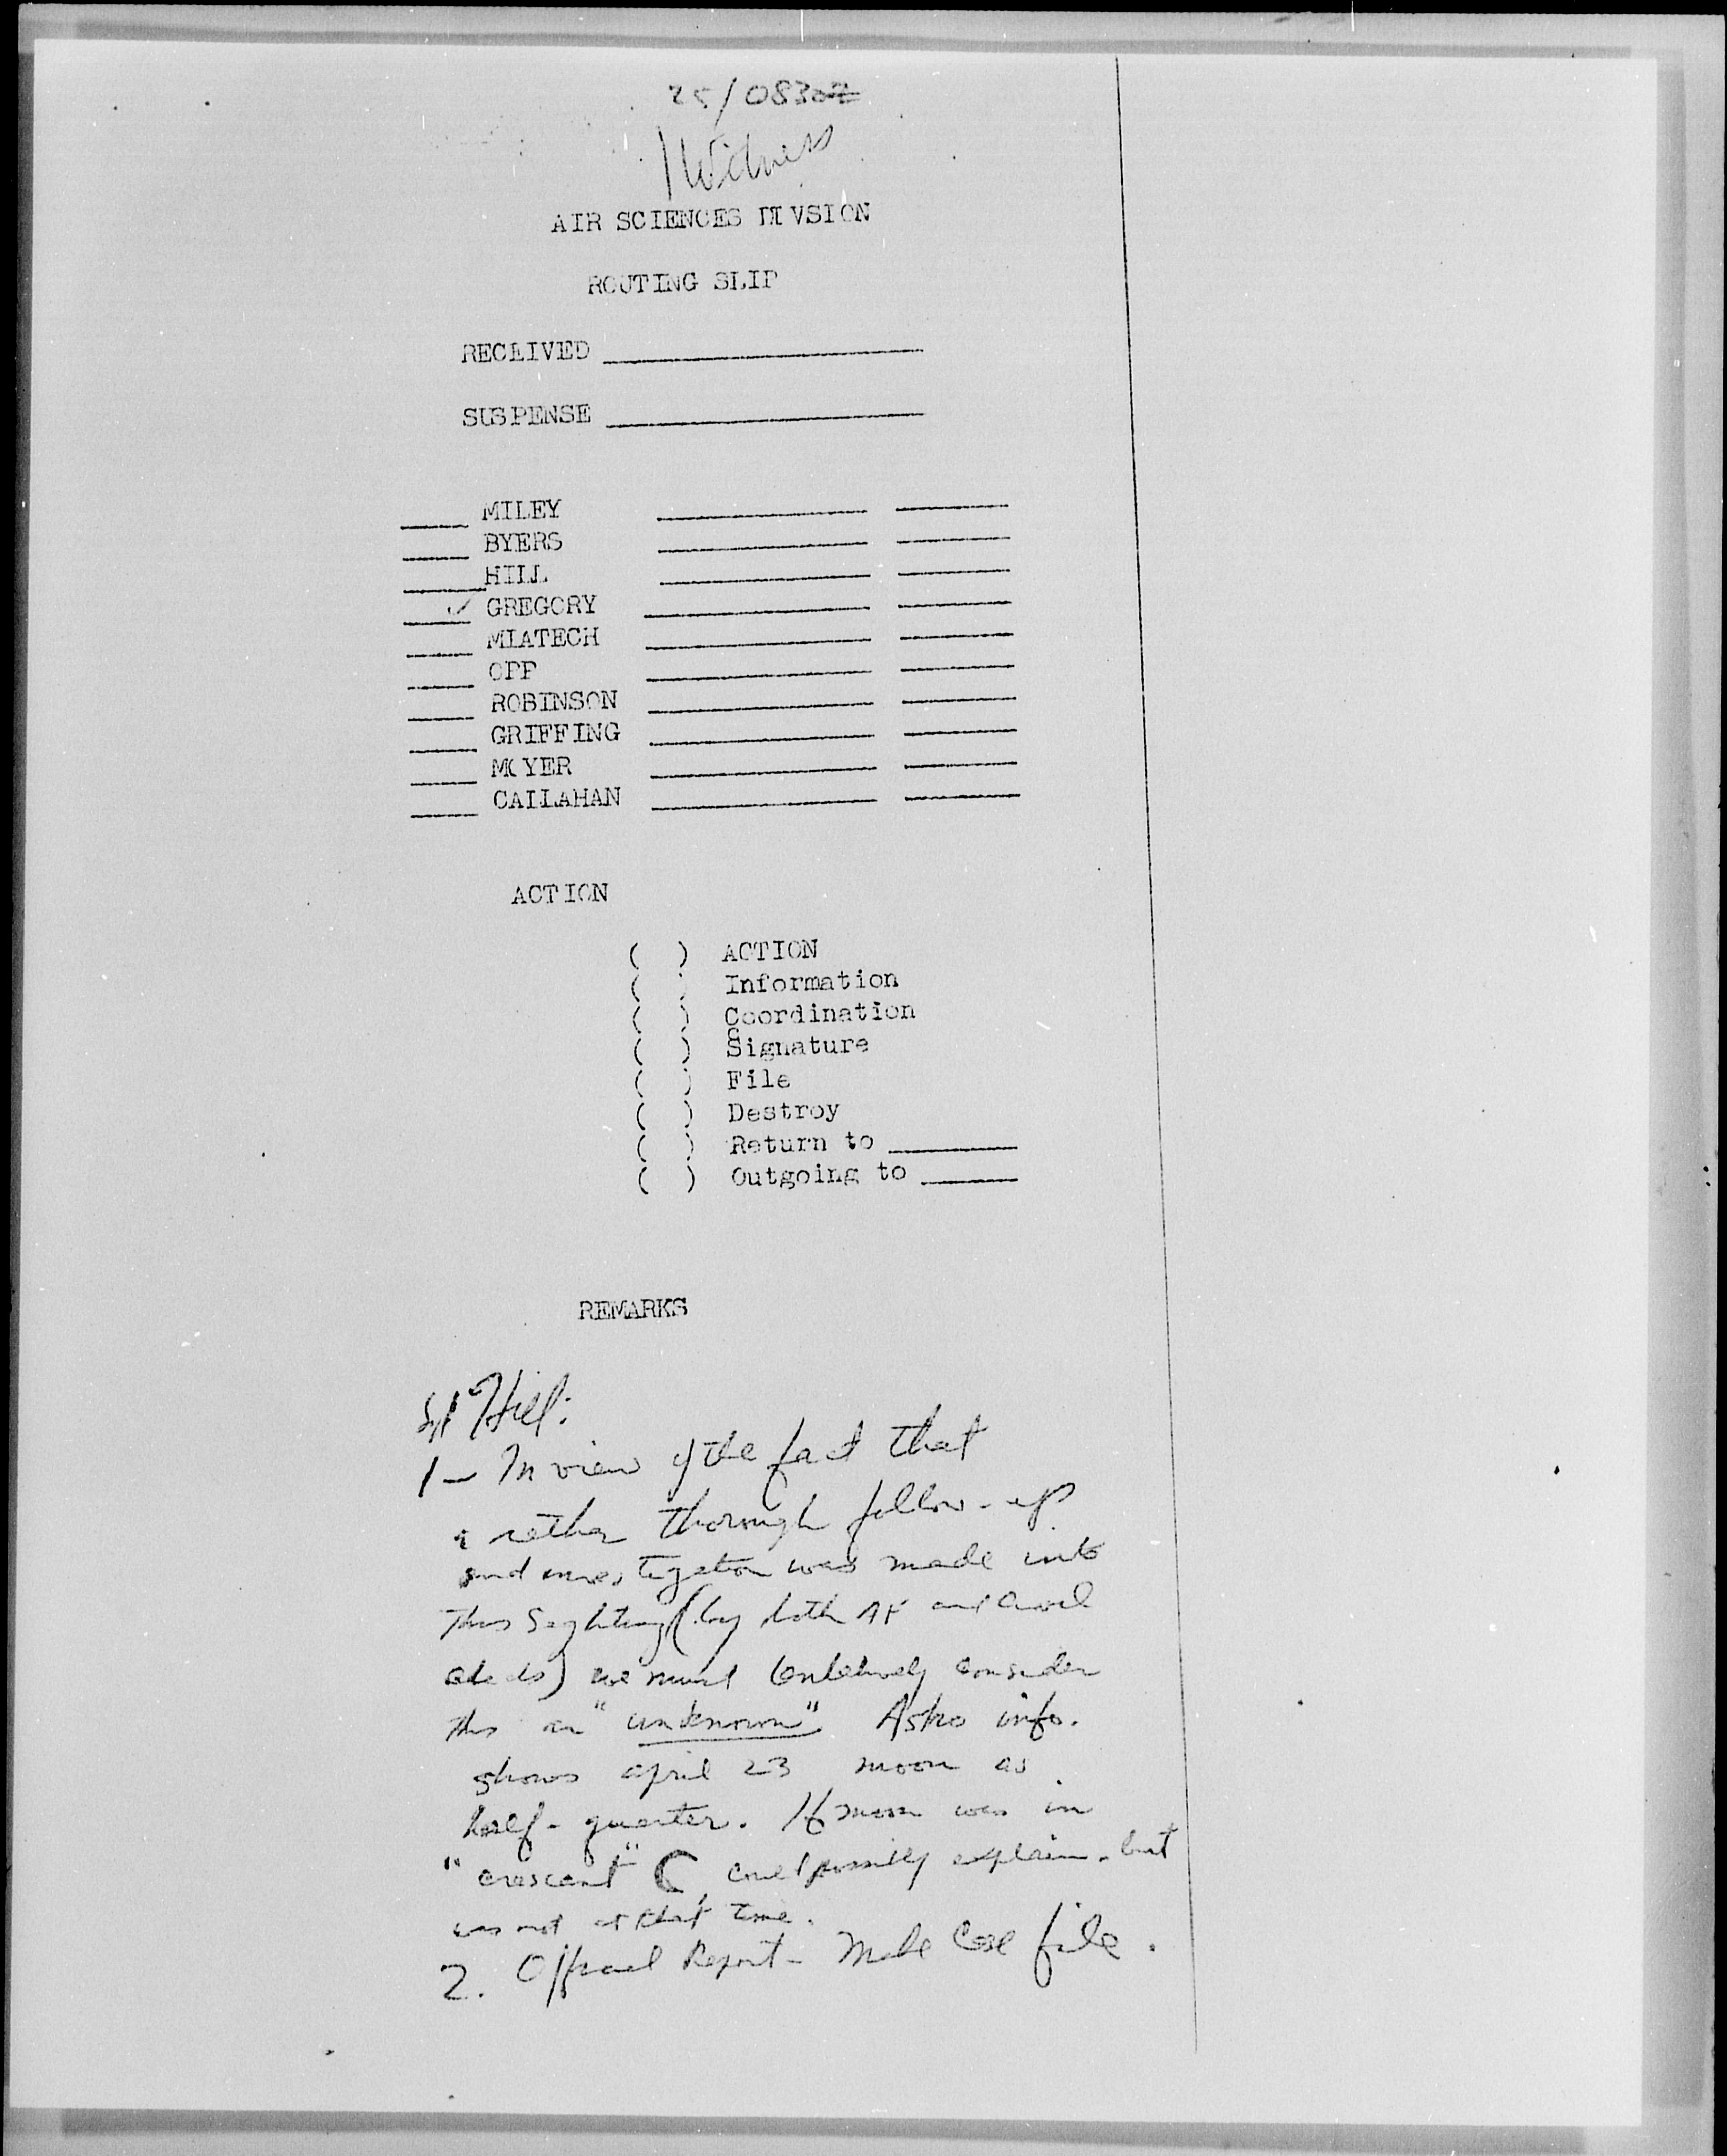 25/0830Z
1 Witness
AIR SCIENCES DIVSION
ROUTING SLIP
RECEIVED
SUSPENSE
MILEY
BYERS
HILL
✓ GREGORY
MIATECH
OFF
ROBINSON
GRIFFING
MOYER
CALLAHAN
ACTION
( ) ACTION
( ) Information
( ) Coordination
( ) Signature
( ) File
( ) Destroy
( ) Return to
( ) Outgoing to
REMARKS
Hill:
1 - In view of the fact that
a rather thorough follow-up
and investigation was made into
this sighting (by both AF and
) we must tentatively consider
this an "unknown". Astro info.
shows april 23 moon as
half-quarter. If moon was in
"crescent" could possibly explain - but
was not at that time.
2. Official Report - Make Case file.